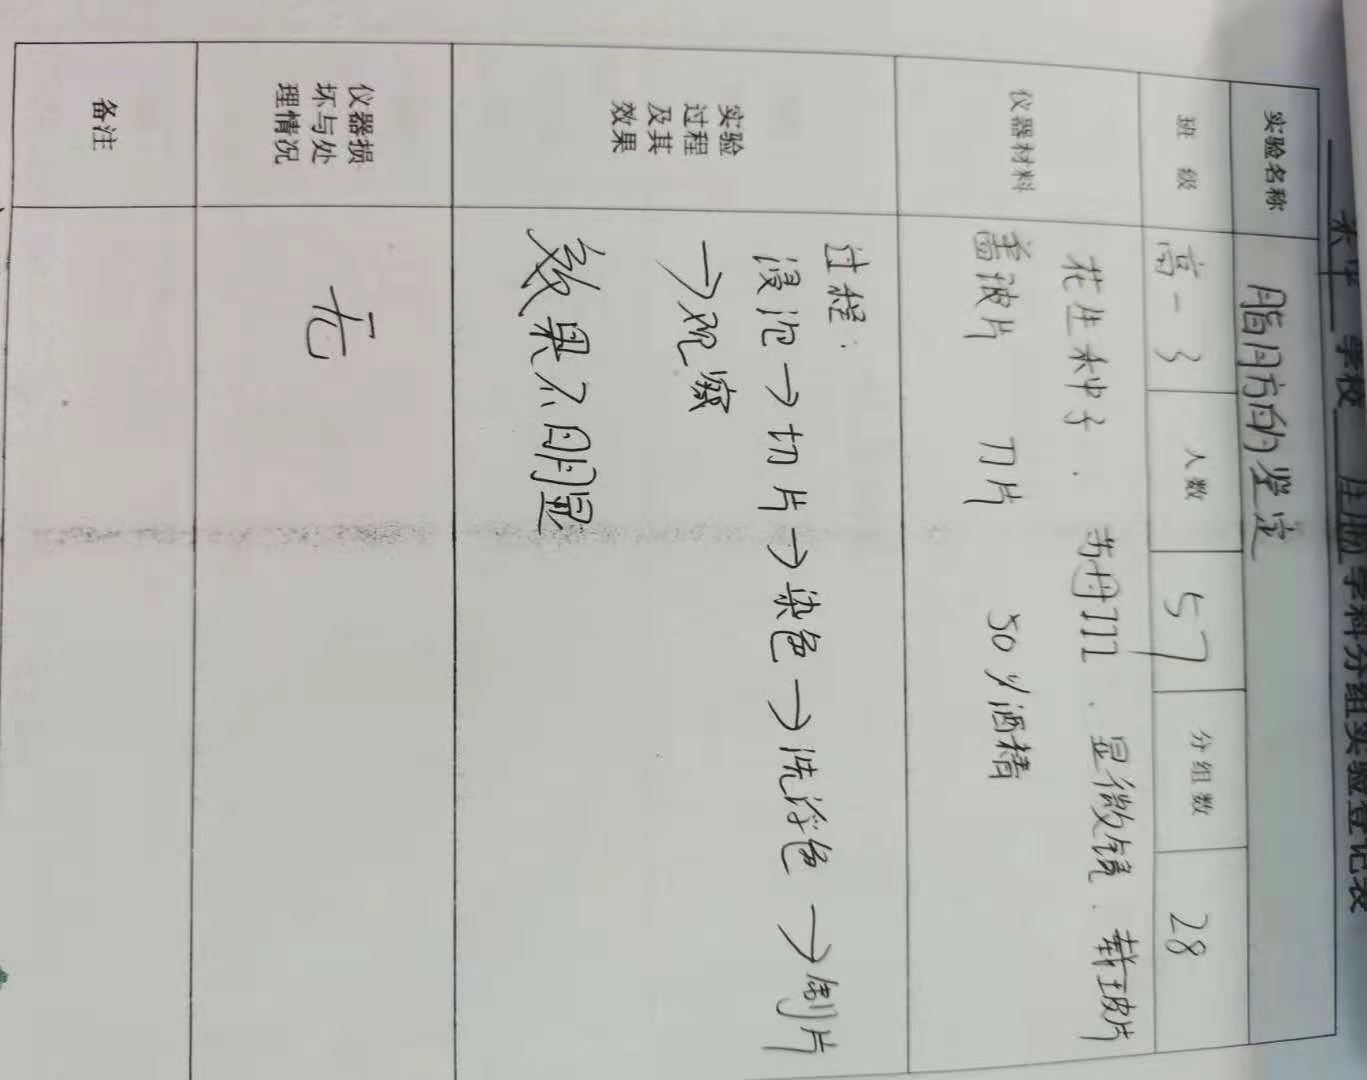 学校 生物 学科分组实验登记表
实验名称 脂肪的鉴定
班 级 高一3 人数 57 分组数 28
仪器材料 花生种子、苏丹III、显微镜、载玻片
盖玻片 刀片 50%酒精
实验过程及其效果 过程:
浸泡→切片→染色→洗浮色→制片
→观察
效果不明显
仪器损坏与处理情况 无
备注